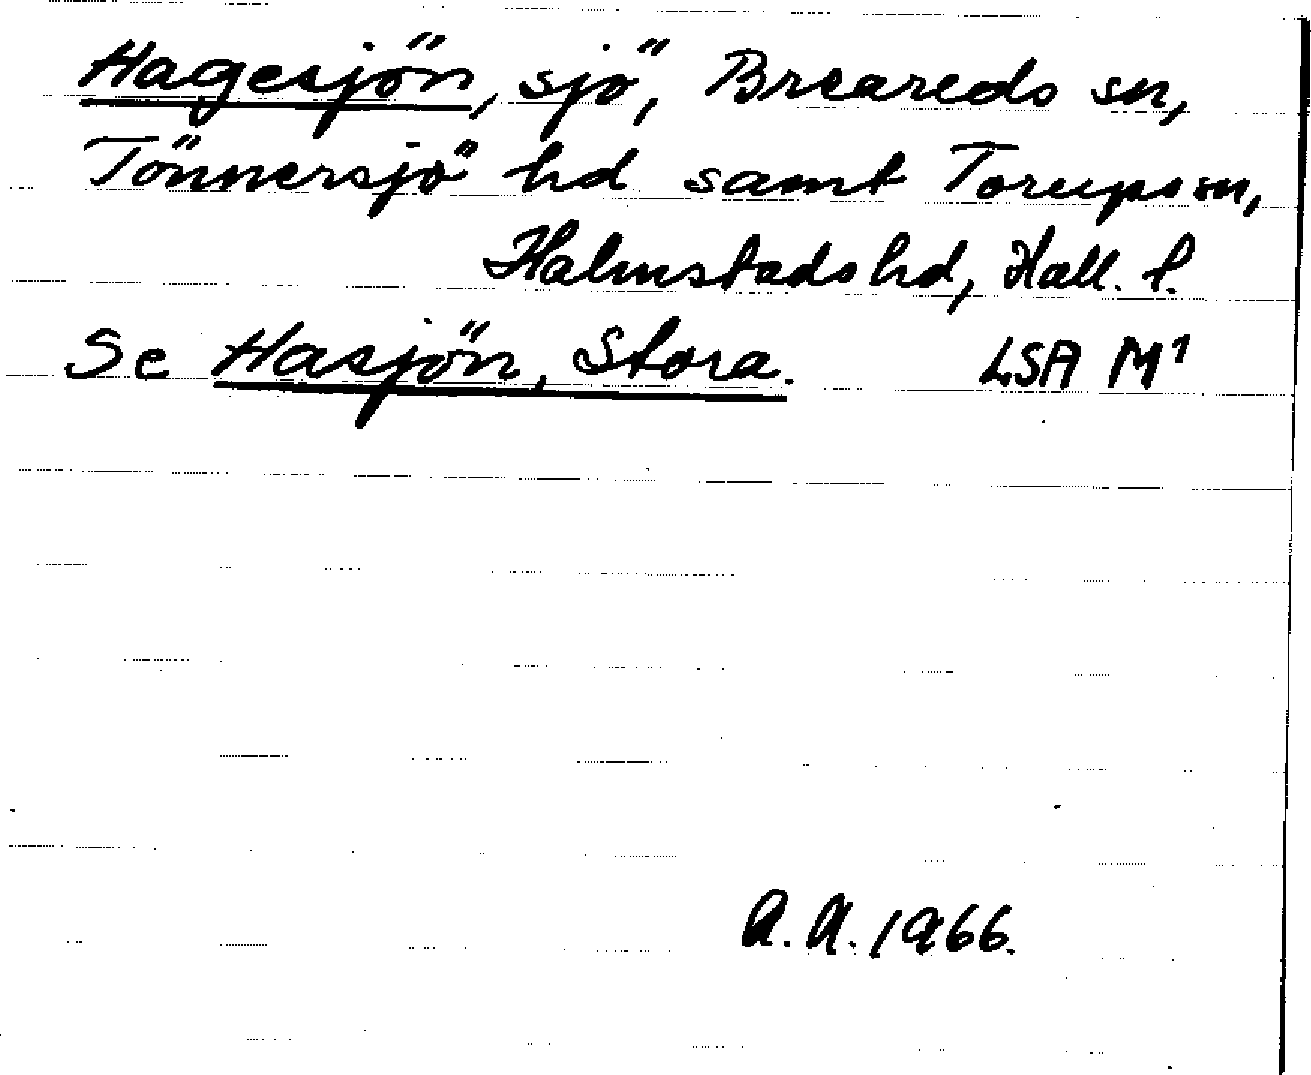 Hagesjön, sjö, Breareds sn,
Tönnersjö hd samt Torups sn,
Halmstads hd, Hall. l.
Se Hasjön, Stora. LSA M1
A.A. 1966.